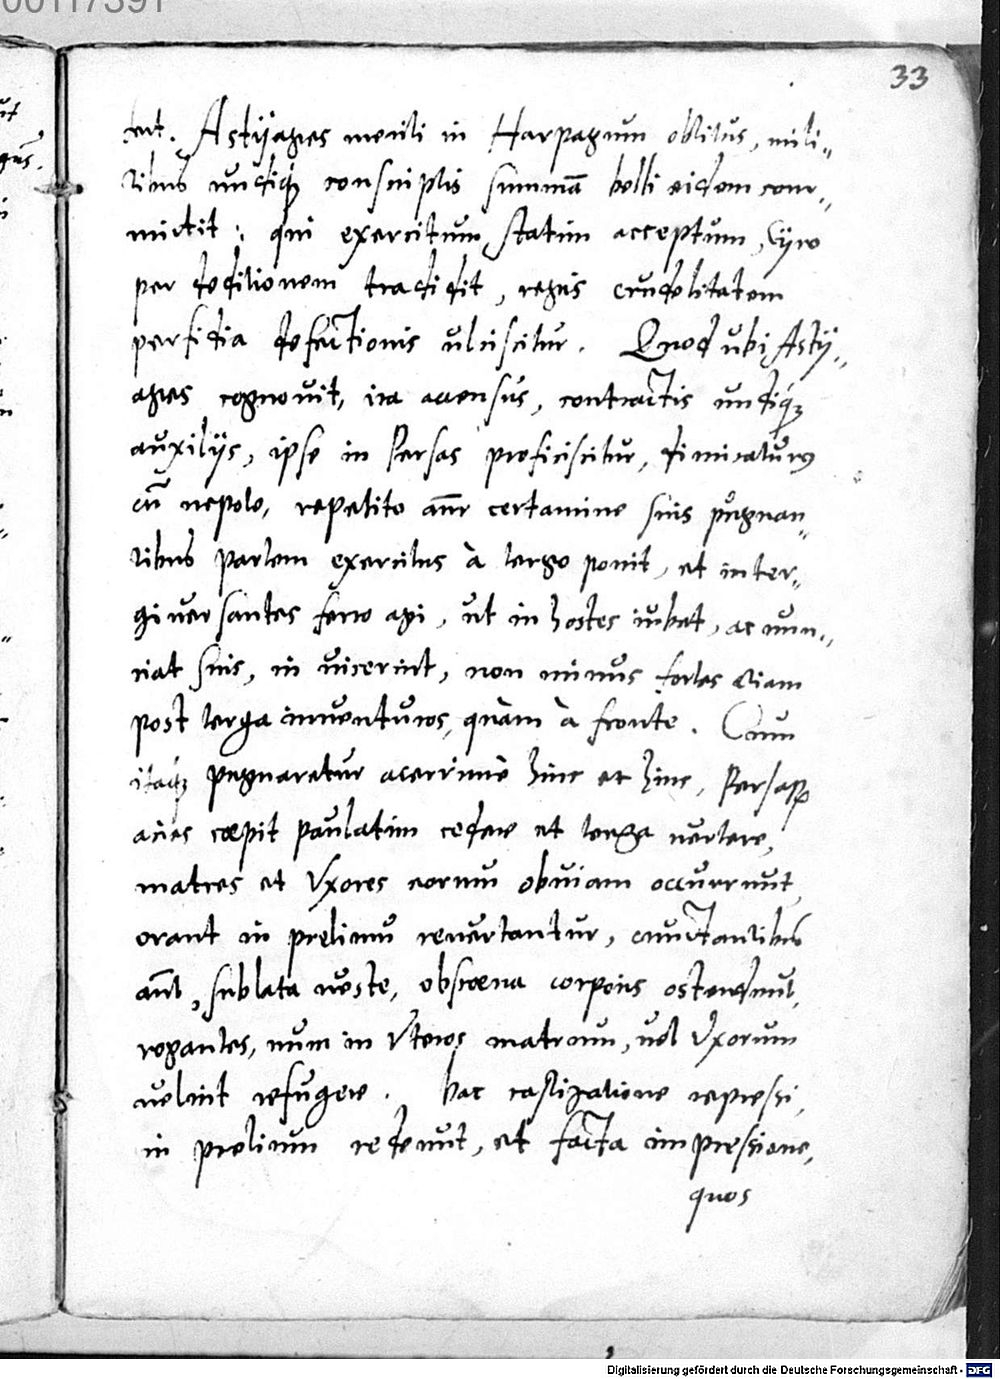 00117391
33
tert. Astijages meriti in Harpagum oblitus, mili„
tibus undiq₃ conscriptis summā belli eidem com„
mictit: qui exercitum statim acceptum, Cyro
per deditionem tradidit, regis crudelitatem
perfidia defectionis ulciscitur. Quod ubi Astij„
ages cognovit, ira accensus, contractis undiq₃
auxilijs, ipse in Persas proficiscitur, dimicaturus
cū nepote, repetito aūt certamine suis pugnan„
tibus partem exercitus à tergo ponit, et inter„
giversantes ferro agi, ut in hostes iubet, ac nun„
ciat suis, ni vicerint, non minus fortes etiam
post terga inventuros, quàm à fronte. Cum
itaq₃ pugnaretur acerrimè hinc et hinc, Persarꝝ
acies coepit paulatim cedere et terga vertere,
matres et Vxores eorum obviam occurrunt,
orant in prelium revertantur, cunctantibus
aūt, sublata veste, obscoena corporis ostendunt,
rogantes, num in Vteros matrum, vel Vxorum
velint refugere. hac castigatione repressi,
in prelium redeunt, et facta impressione,
quos
Digitalisierung gefördert durch die Deutsche Forschungsgemeinschaft - DFG